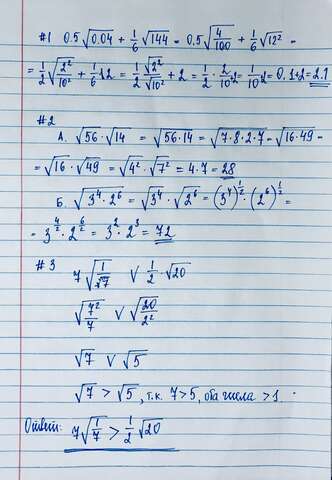 #1 0.5√0.04 + 1/6 √144 = 0.5√(4/100) + 1/6 √12² =
= 1/2 √(2²/10²) + 1/6 · 12 = 1/2 √2²/√10² + 2 = 1/2 · 2/10 + 2 = 1/10 + 2 = 0.1 + 2 = 2.1
#2
А. √56 · √14 = √(56 · 14) = √(7 · 8 · 2 · 7) = √(16 · 49) =
= √16 · √49 = √4² · √7² = 4 · 7 = 28
Б. √(3⁴ · 2⁶) = √3⁴ · √2⁶ = (3⁴)^(1/2) · (2⁶)^(1/2) =
= 3^(4/2) · 2^(6/2) = 3² · 2³ = 72
#3 7√(1/7) V 1/2 · √20
√(7²/7) V √(20/2²)
√7 V √5
√7 > √5, т.к. 7 > 5, оба числа > 1.
Ответ: 7√(1/7) > 1/2 √20